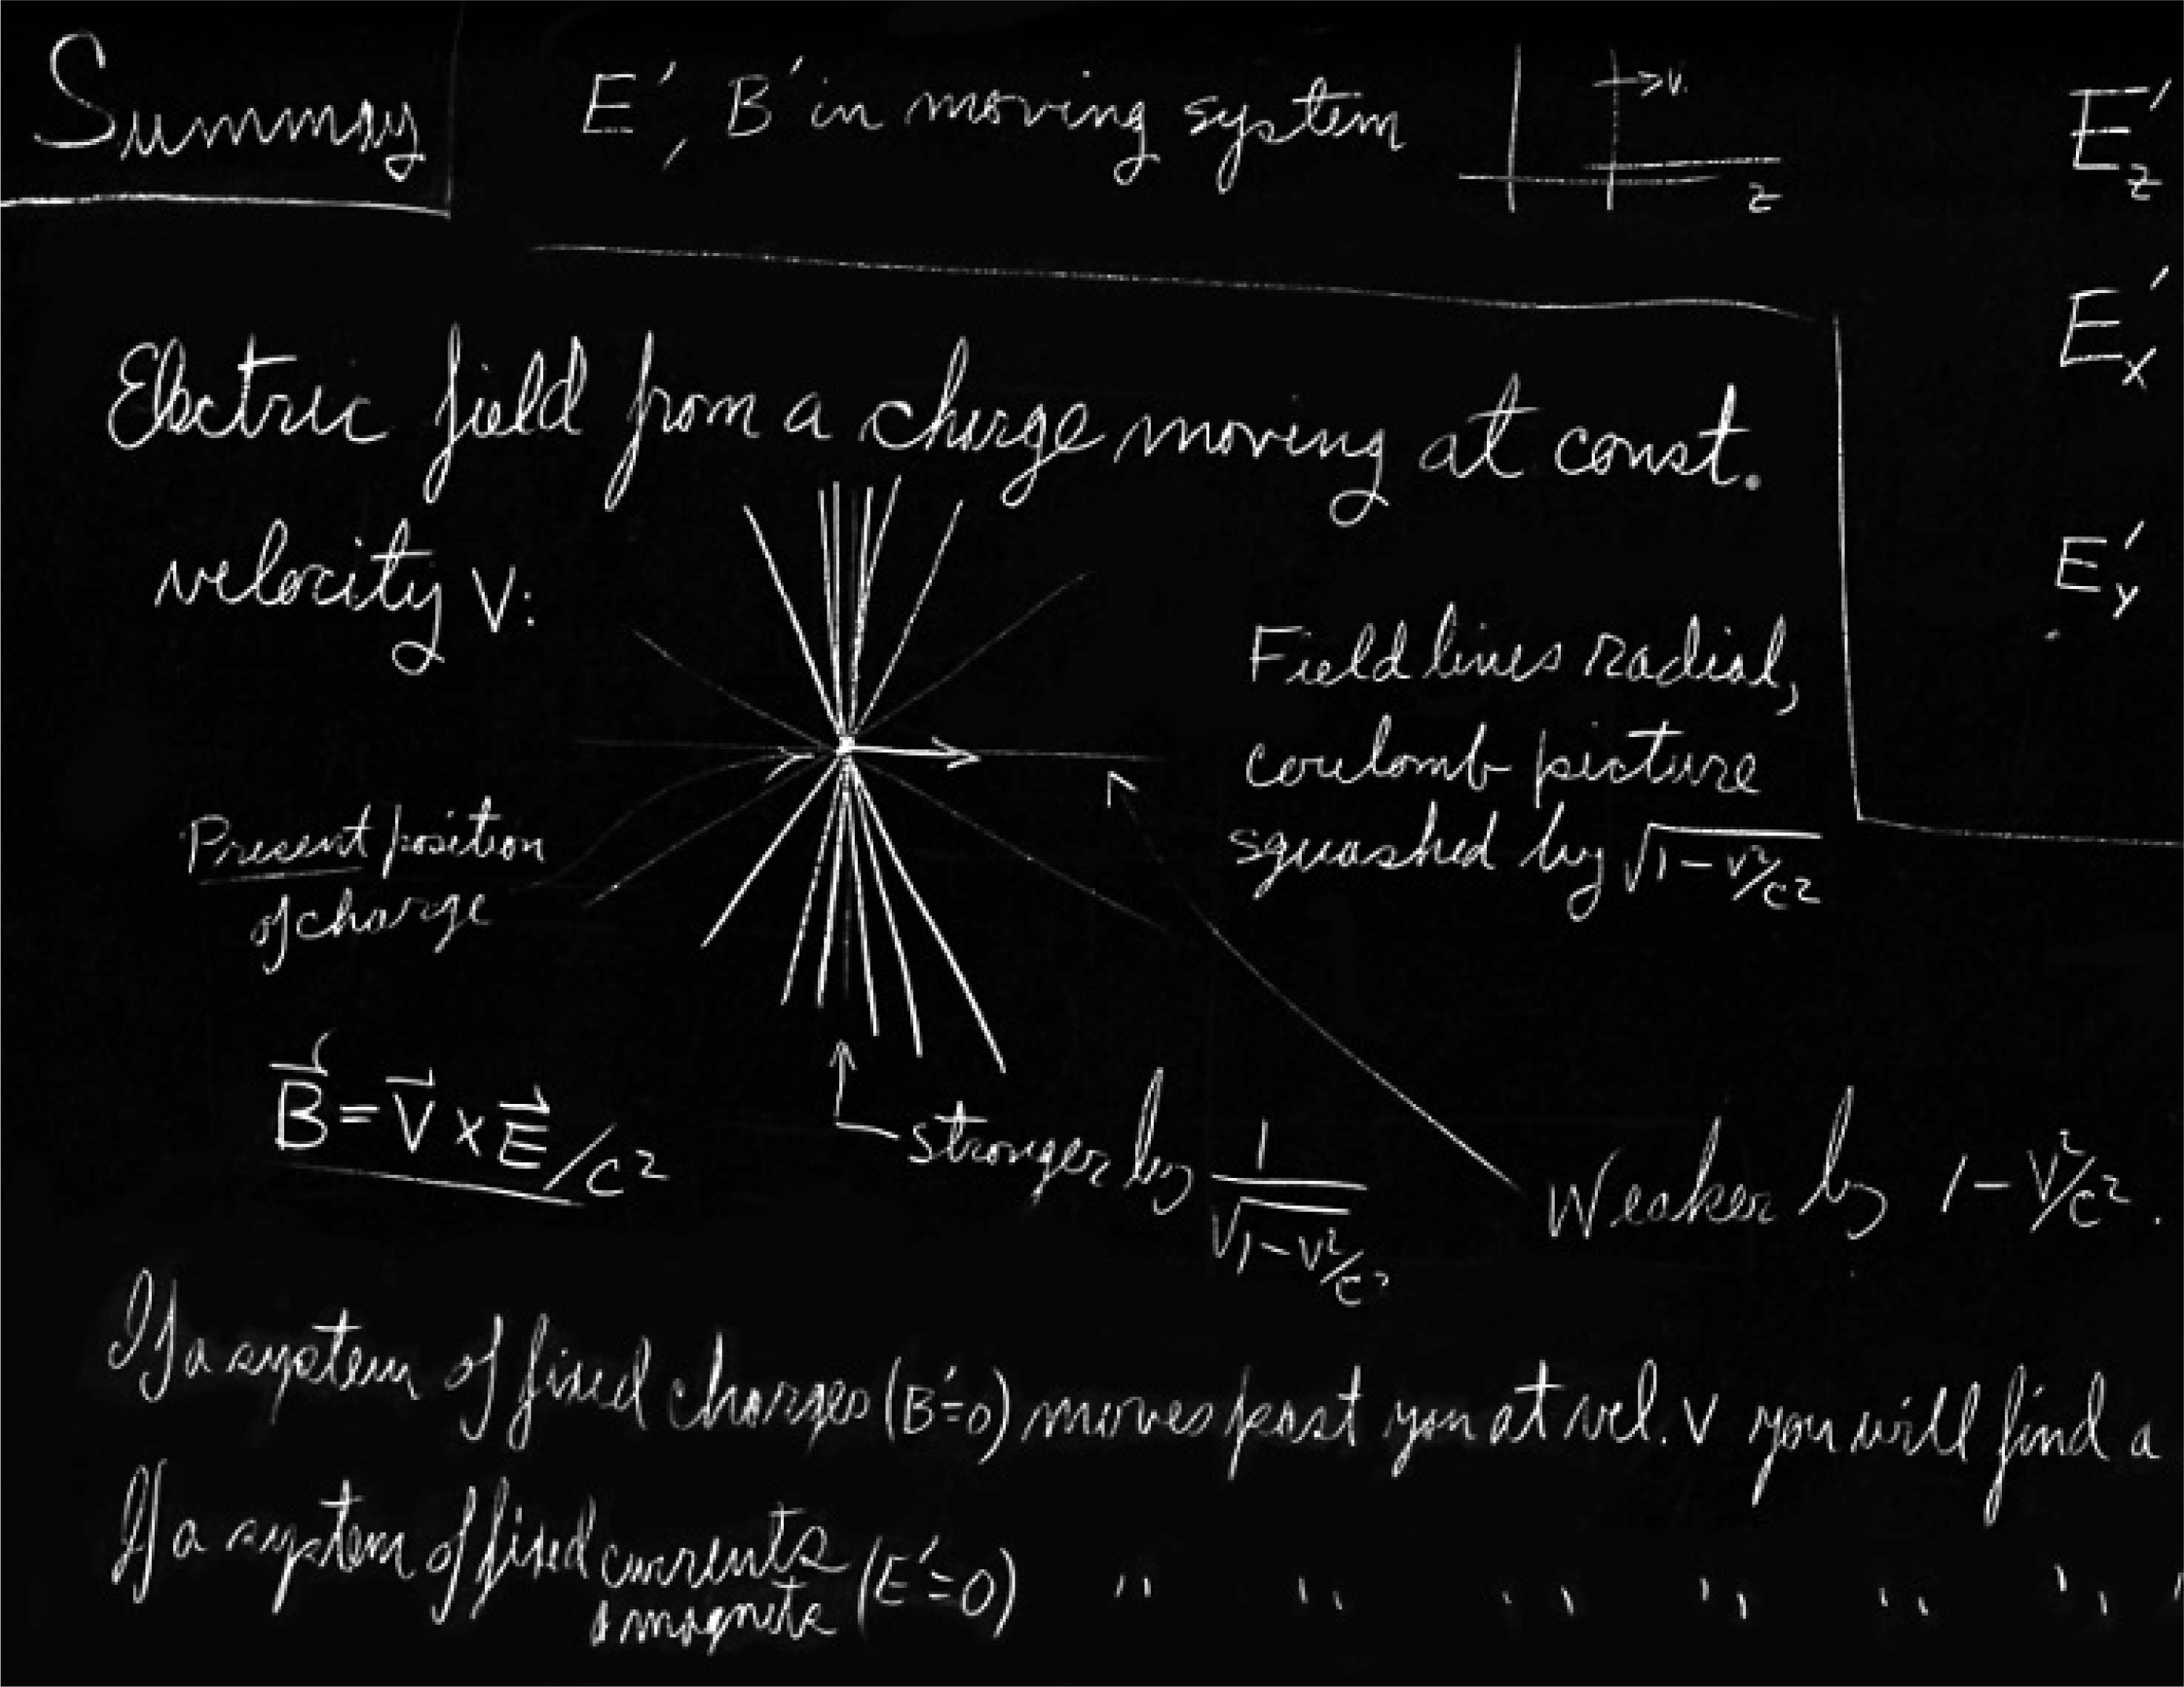 Summary
E′, B′ in moving system
v
z
E′z
E′x
E′y
Electric field from a charge moving at const.
velocity v:
Field lines radial,
coulomb picture
squashed by √1-v²/c²
Present position
of charge
B⃗ = v⃗ × E⃗/c²
stronger by 1/√1-v²/c²
Weaker by 1-v²/c².
If a system of fixed charges (B′=0) moves past you at vel. v you will find a
If a system of fixed currents
& magnets (E′=0) " " " " " "